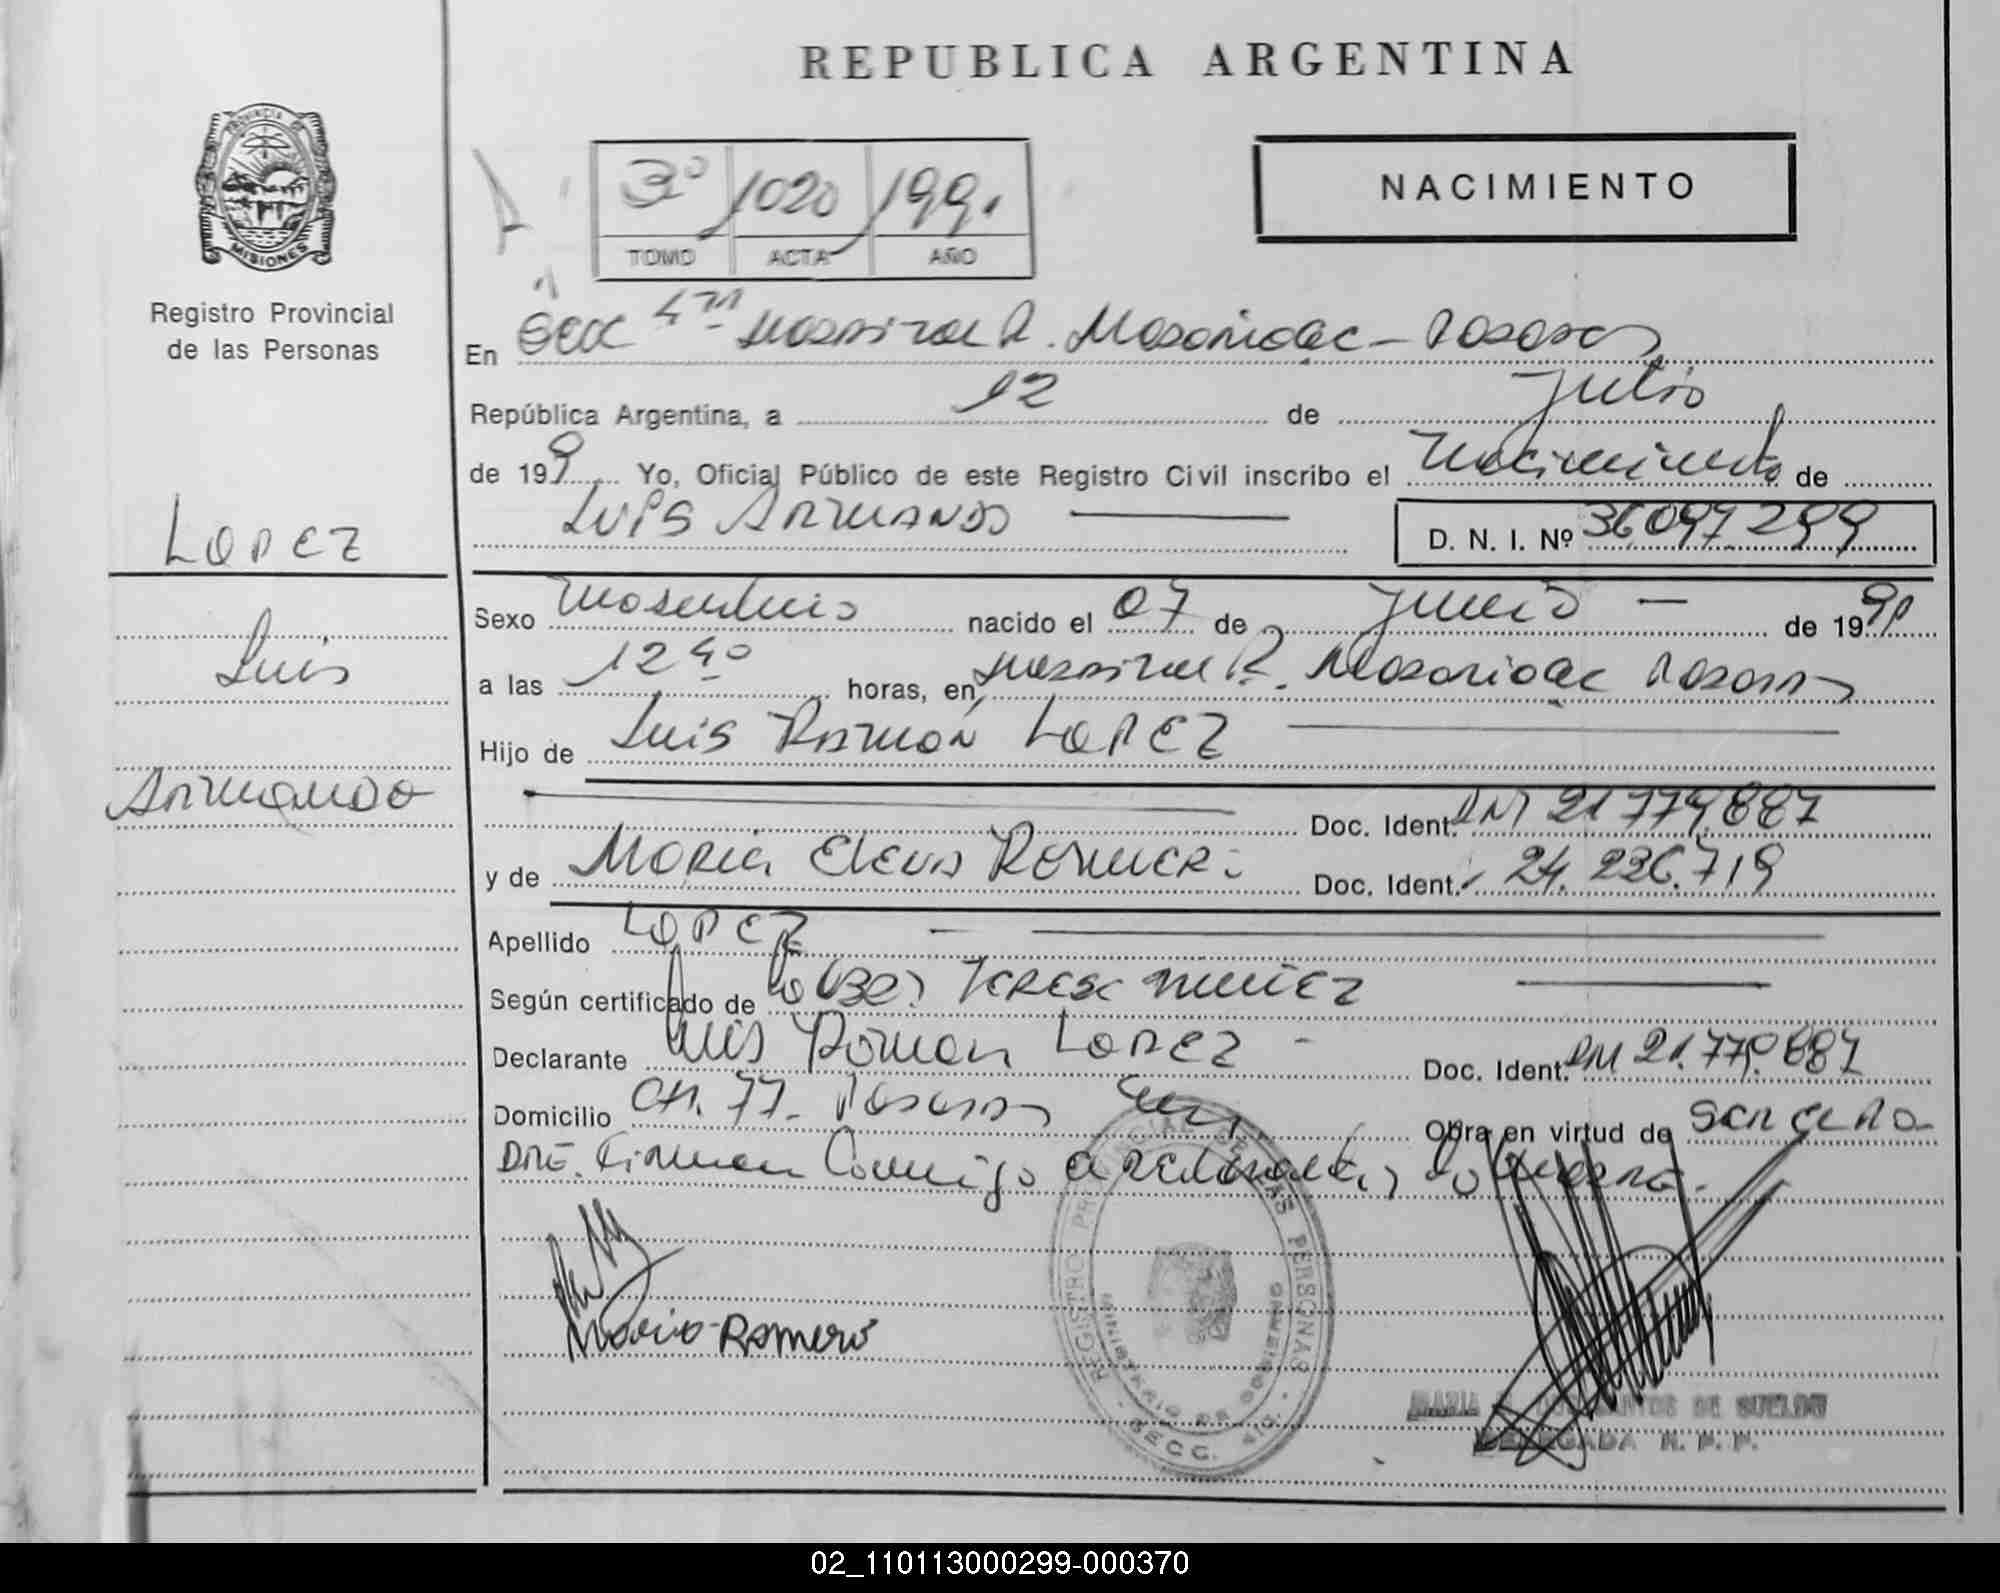 REPUBLICA ARGENTINA
PROVINCIA DE
MISIONES
Registro Provincial
de las Personas
3º 1020 1991
TOMO ACTA AÑO
NACIMIENTO
En Secc 4ta Hospital R. Madariaga - Posadas
República Argentina, a 12 de Julio
de 199 Yo, Oficial Público de este Registro Civil inscribo el Nacimiento de
Luis Armando D. N. I. Nº 36097299
Lopez
Luis
Armando
Sexo Masculino nacido el 07 de Junio de 1991
a las 12 40 horas, en Hospital R. Madariaga Posadas
Hijo de Luis Ramón Lopez
Doc. Ident. DNI 21 779,887
y de Maria Elena Romero Doc. Ident. 24.236.719
Apellido Lopez
Según certificado de Teresa Nuñez
Declarante Luis Ramon Lopez - Doc. Ident. DNI 21.779.887
Domicilio CH. 77- Posadas Obra en virtud de ser el Pa-
dre. Firman Conmigo
Mario Romero
REGISTRO PROVINCIAL DE LAS PERSONAS
MINISTERIO DE GOBIERNO
SECC. 4ta.
MARIA DE SUELDO
DELEGADA R. P. P.
02_110113000299-000370